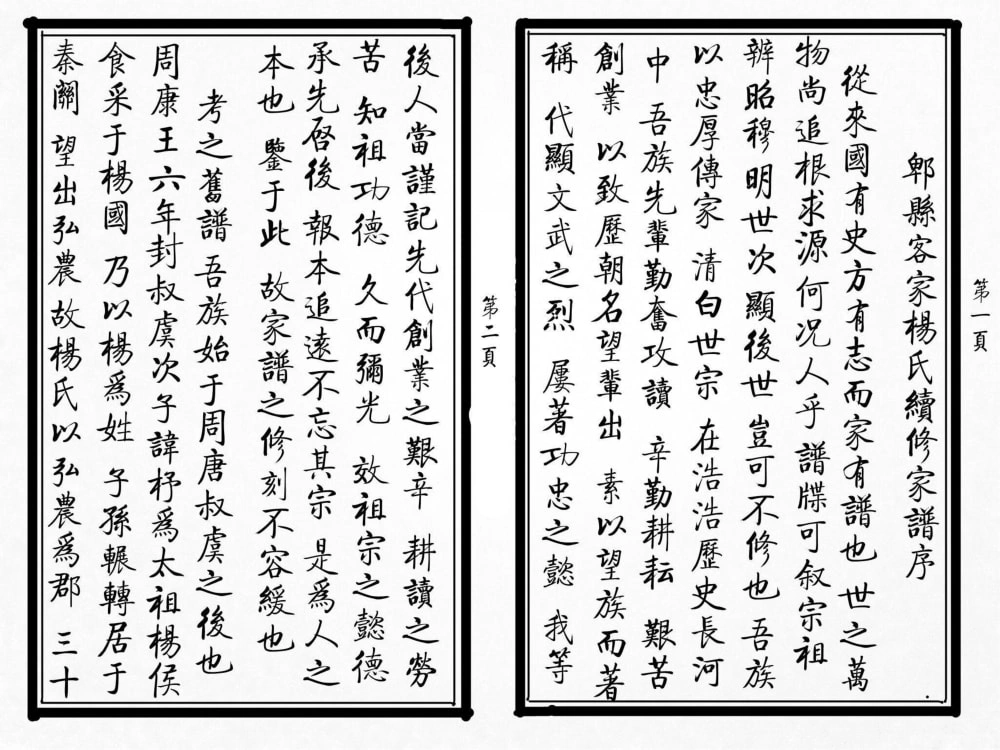 第一頁
郫縣客家楊氏續修家譜序
從來國有史方有志而家有譜也 世之萬
物尚追根求源何况人乎 譜牒可叙宗祖
辨昭穆明世次 顯後世 豈可不修也 吾族
以忠厚傳家 清白世宗 在浩浩歷史長河
中 吾族先輩勤奮攻讀 辛勤耕耘 艱苦
創業 以致歷朝名望輩出 素以望族而著
稱 代顯文武之烈 屢著功忠之懿 我等
第二頁
後人當謹記先代創業之艱辛 耕讀之勞
苦 知祖功德 久而彌光 效祖宗之懿德
承先啓後 報本追遠不忘其宗 是爲人之
本也 鑒于此 故家譜之修刻不容緩也
考之舊譜 吾族始于周唐叔虞之後也
周康王六年封叔虞次子諱杼爲太祖楊侯
食采于楊國 乃以楊爲姓 子孫輾轉居于
秦關 望出弘農 故楊氏以弘農爲郡 三十